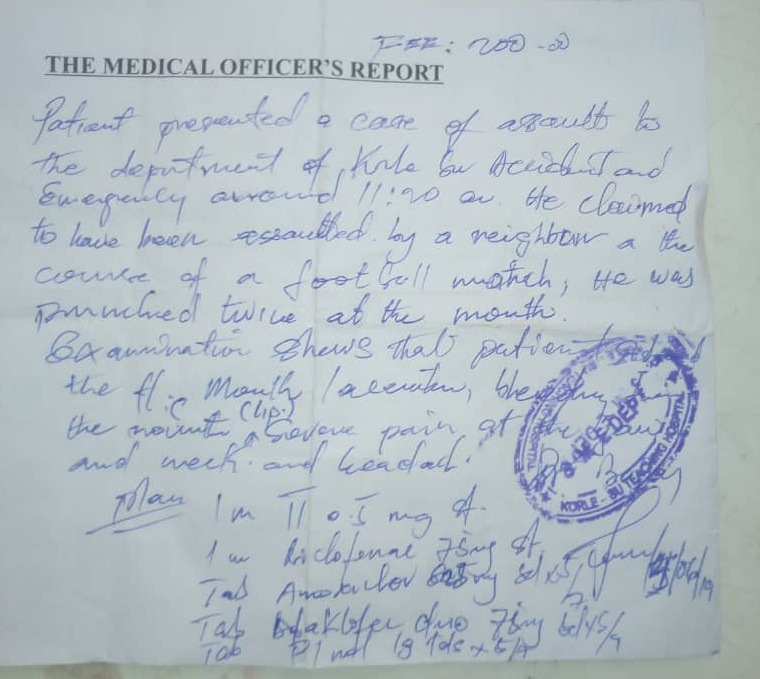 FEE: 200-00
THE MEDICAL OFFICER'S REPORT
Patient presented a case of assault to
the department of Korle bu Accident and
Emergency around 11:20 am. He claimed
to have been assaulted by a neighbour a the
course of a football match, He was
punched twice at the mouth.
Examination shows that patient
the ff. Mouth laceration, bleeding
(lip.)
the mouth, Severe pain at the
and neck and headach.
Plan 1m TT 0.5 mg st.
1m Diclofenac 75mg st.
Tab 625mg bd x 5/7
Tab duo 75mg bd x 5/7
Tab 1g tds x 5/7
KORLE-BU TEACHING HOSPITAL